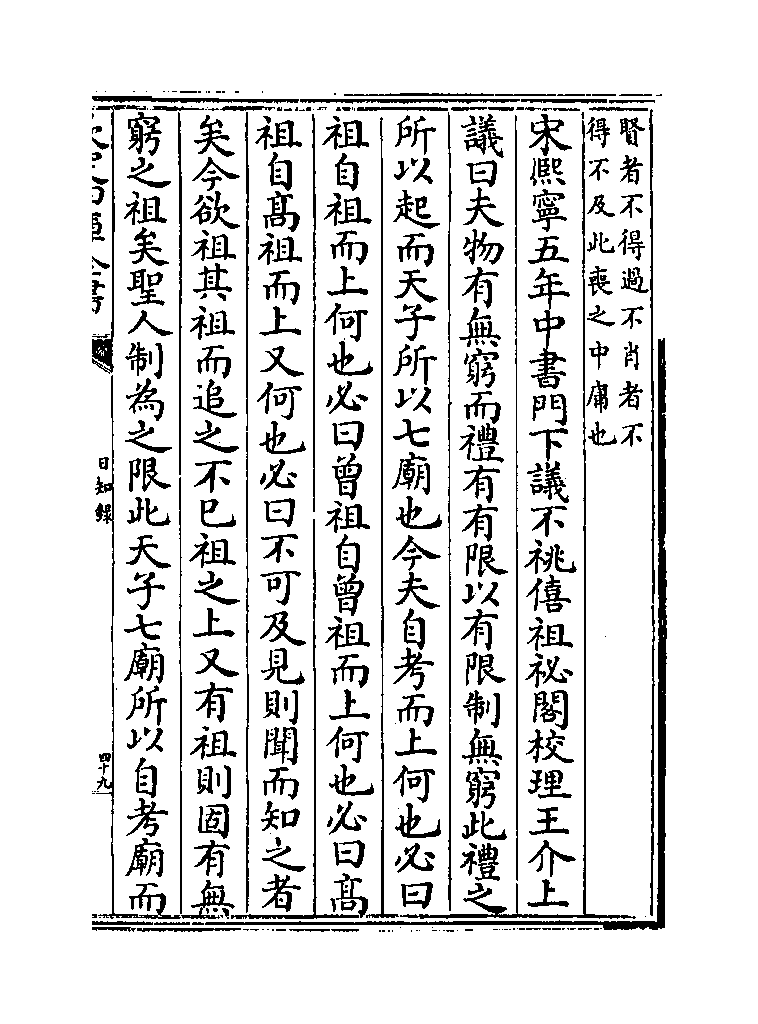 賢者不得過不肖者不
得不及此喪之中庸也
宋熈寧五年中書門下議不祧僖祖祕閣校理王介上
議曰夫物有無窮而禮有有限以有限制無窮此禮之
所以起而天子所以七廟也今夫自考而上何也必曰
祖自祖而上何也必曰曾祖自曾祖而上何也必曰髙
祖自髙祖而上又何也必曰不可及見則聞而知之者
矣今欲祖其祖而追之不已祖之上又有祖則固有無
窮之祖矣聖人制為之限此天子七廟所以自考廟而
日知錄
四十九